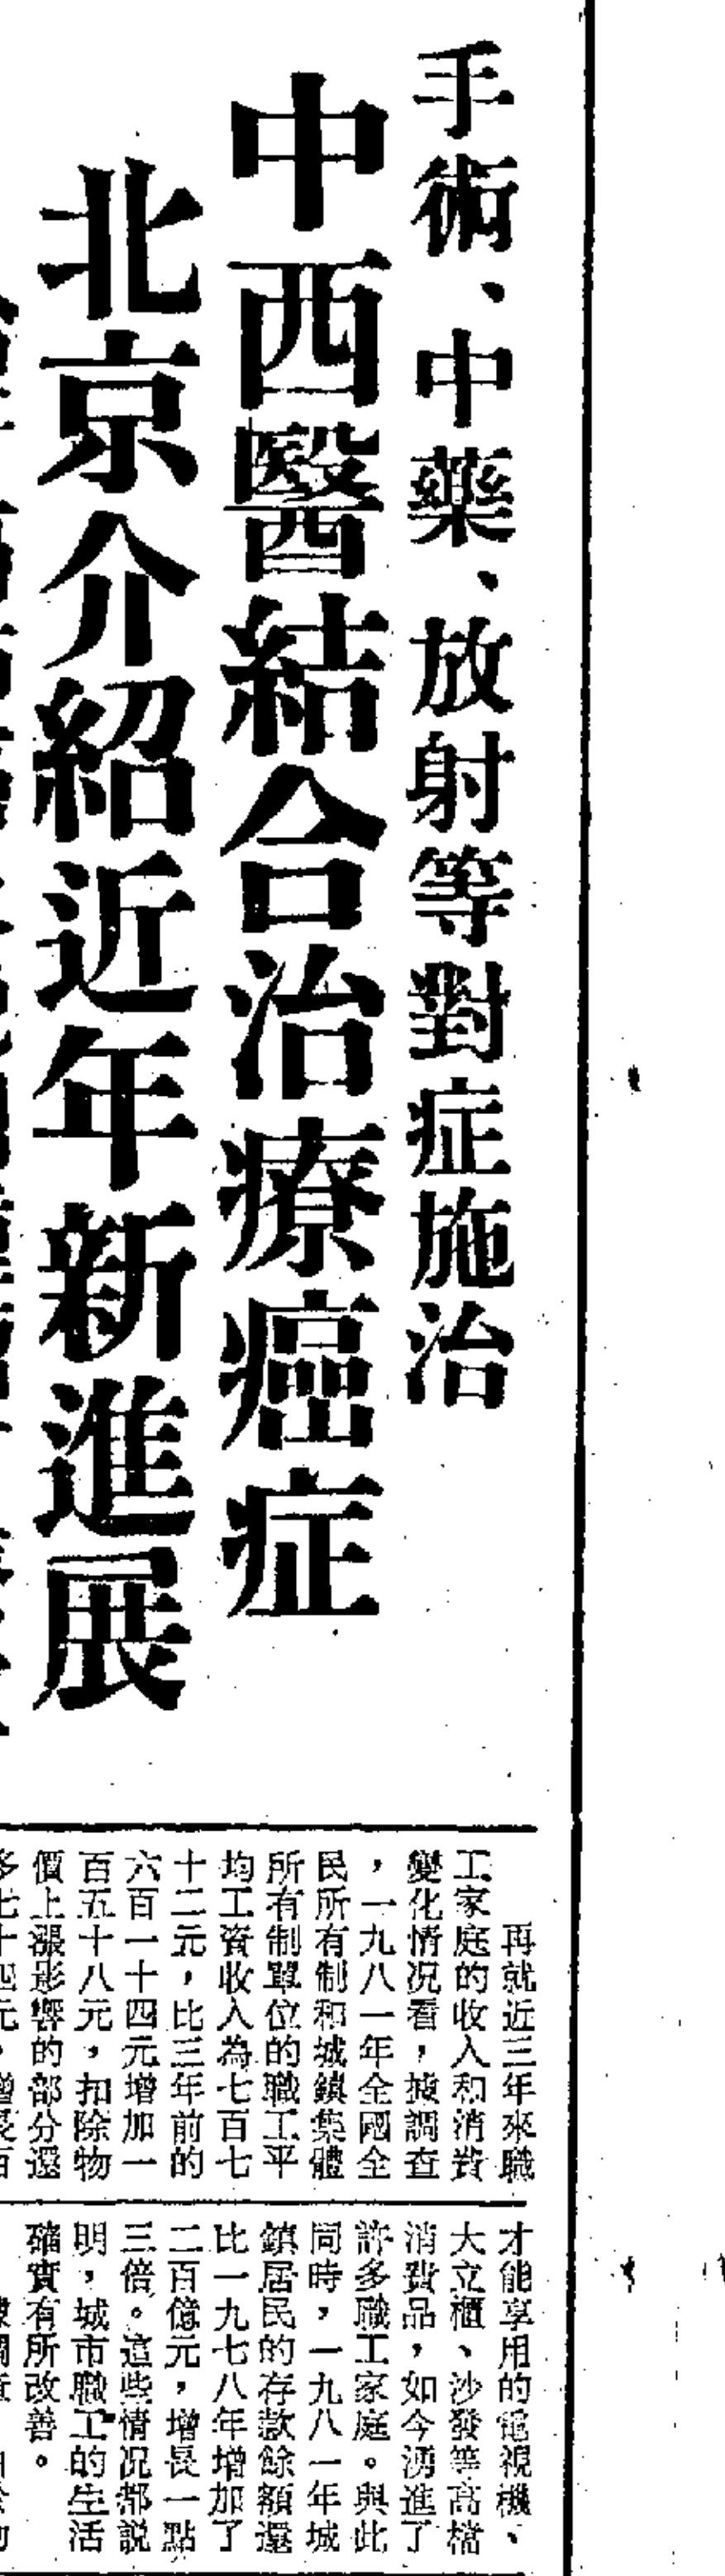 手術、中藥、放射等對症施治
中西醫結合治療癌症
北京介紹近年新進展
再就近三年來職
工家庭的收入和消費
變化情况看，據調查
，一九八一年全國全
民所有制和城鎮集體
所有制單位的職工平
均工資收入為七百七
十二元，比三年前的
六百一十四元增加一
百五十八元，扣除物
價上漲影響的部分還
才能享用的電視機、
大立櫃、沙發等高檔
消費品，如今湧進了
許多職工家庭。與此
同時，一九八一年城
鎮居民的存款餘額還
比一九七八年增加了
二百億元，增長一點
三倍。這些情况都說
明，城市職工的生活
確實有所改善。